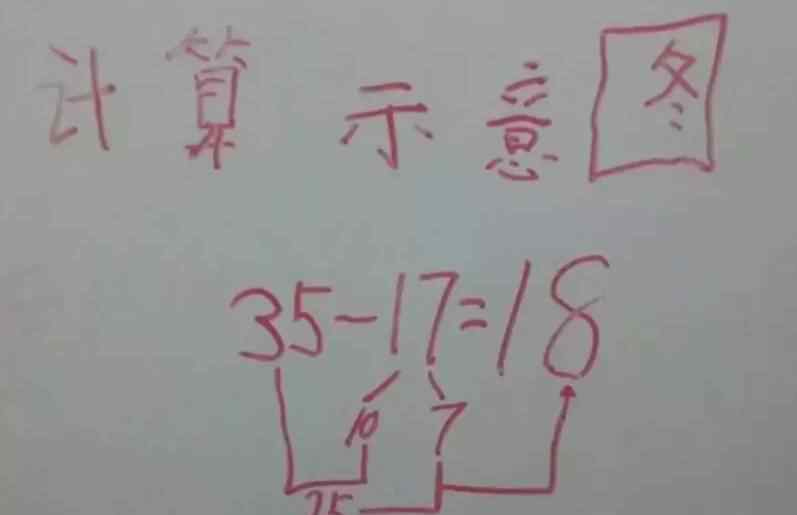 计算示意图
35-17=18
10 7
25